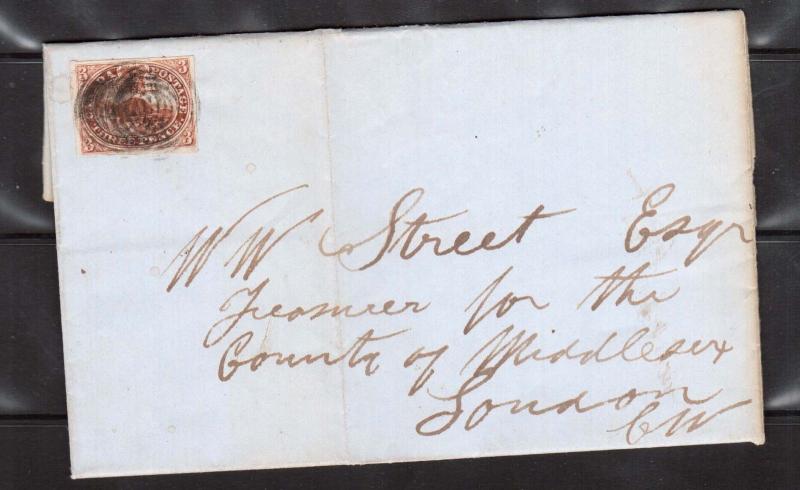 3 CANADA POSTAGE 3
3 THREE PENCE 3
W W Street Esqr
Treasurer for the
County of Middlesex
London
CW